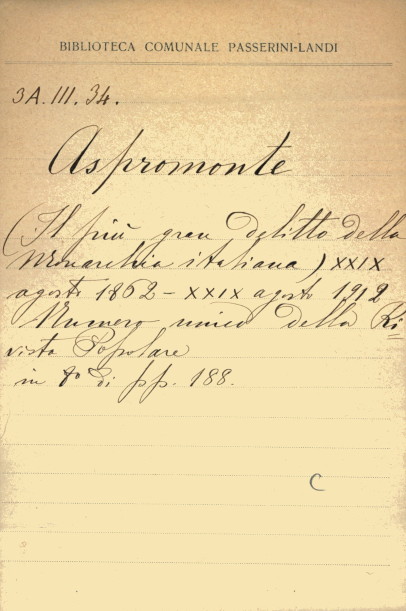 BIBLIOTECA COMUNALE PASSERINI-LANDI
3A. III. 34.
Aspromonte
(Il più gran delitto della
Monarchia italiana) XXIX
agosto 1862 - XXIX agosto 1912
Numero unico della Ri=
vista Popolare
in 8º di pp. 188.
C